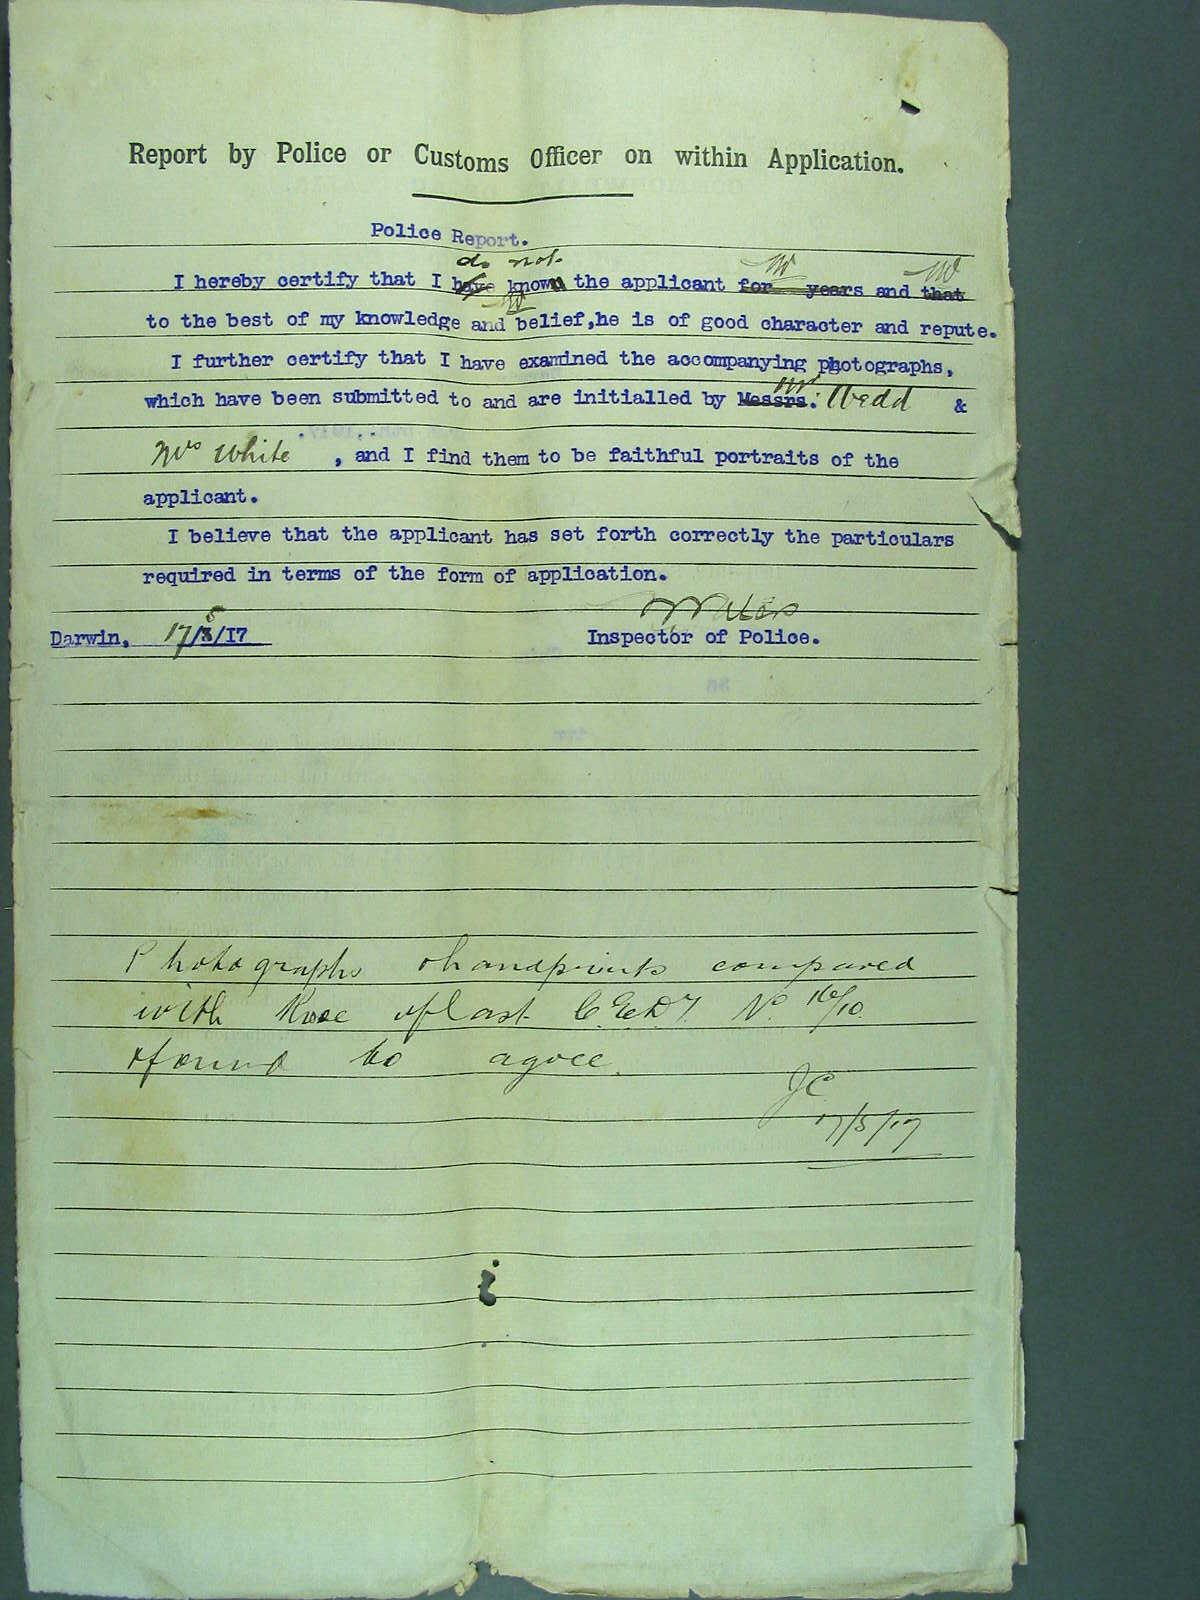 Report by Police or Customs Officer on within Application.
Police Report.
do not
I hereby certify that I have known the applicant for years and that
to the best of my knowledge and belief,he is of good character and repute.
I further certify that I have examined the accompanying photographs,
which have been submitted to and are initialled by Messrs. Wedd &
Mrs White , and I find them to be faithful portraits of the
applicant.
I believe that the applicant has set forth correctly the particulars
required in terms of the form of application.
Darwin, 17/5/17
Inspector of Police.
Photographs & handprints compared
with those of last C.E.D.T. No. 16/10
& found to agree.
JC
17/5/17